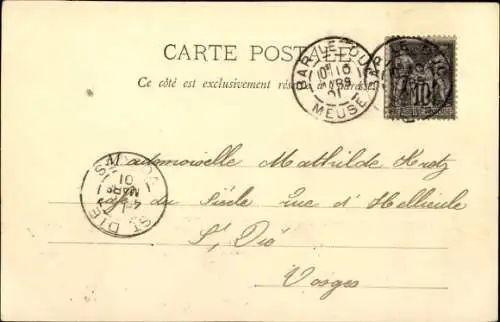 CARTE POSTALE
Ce côté est exclusivement réservé à l'adresse
BAR-LE-DUC
10
MARS
01
MEUSE
BAR-LE-DUC
10
Mademoiselle Mathilde Kretz
café du Siècle rue d'Hellieule
St Dié
Vosges
ST DIE VOSGES
MARS
01